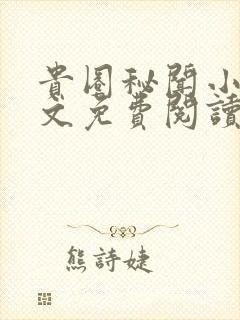 貴圈秘聞小
文免費閱讀
熊詩婕